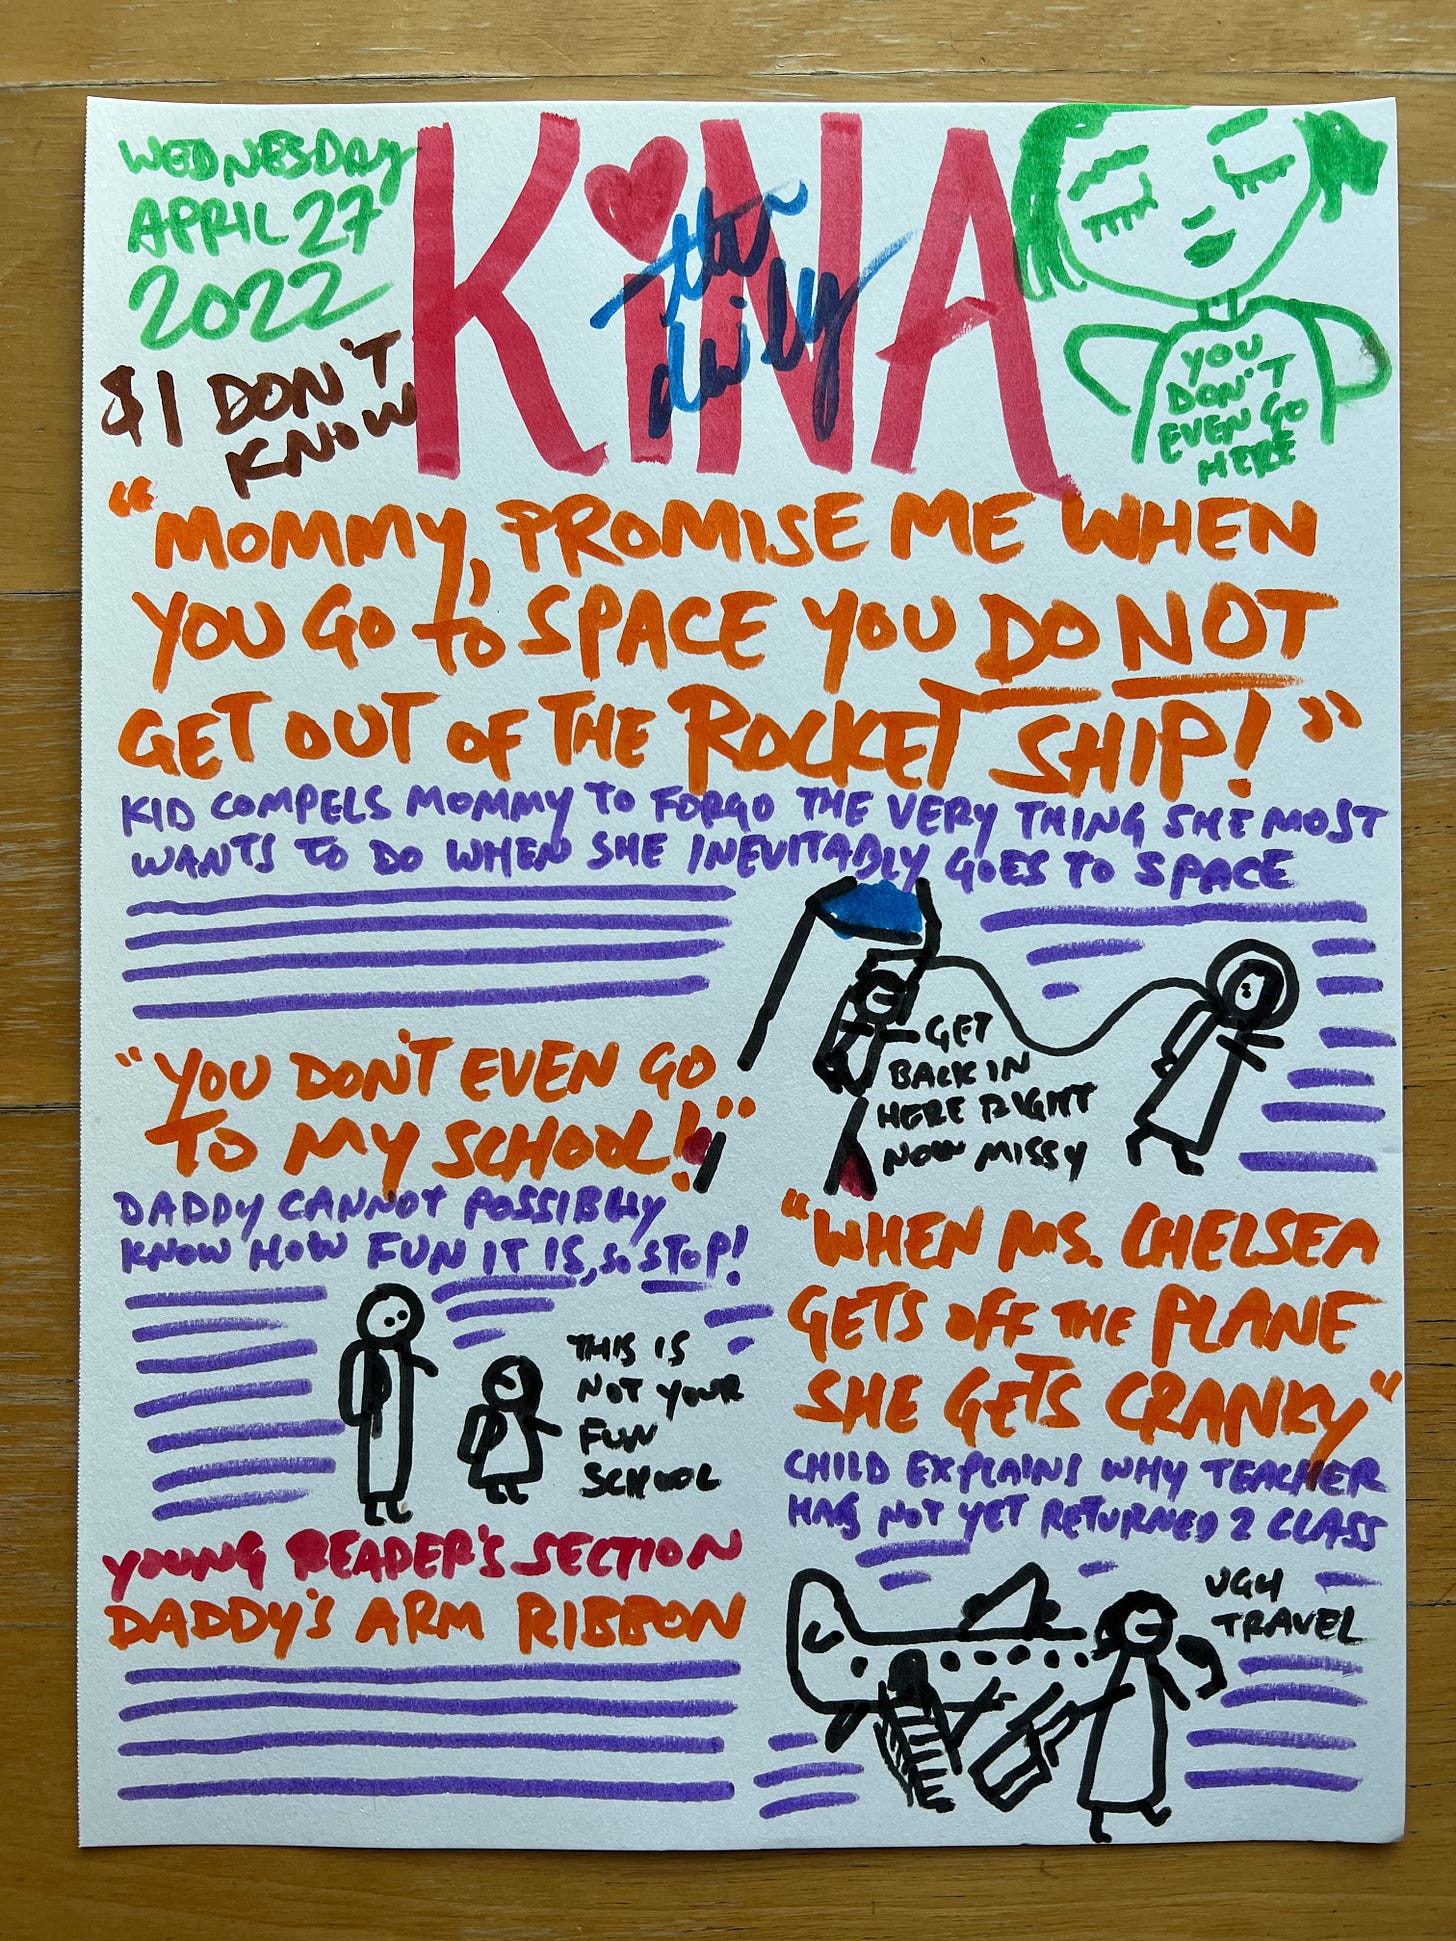 WEDNESDAY
APRIL 27
2022
$1 DON'T
KNOW
the daily
KiNA
YOU
DON'T
EVEN GO
HERE
"MOMMY, PROMISE ME WHEN
YOU GO to SPACE YOU DO NOT
GET OUT OF THE ROCKET SHIP!"
KID COMPELS MOMMY TO FORGO THE VERY THING SHE MOST
WANTS TO DO WHEN SHE INEVITABLY GOES TO SPACE
GET
BACK IN
HERE RIGHT
NOW MISSY
"YOU DON'T EVEN GO
TO MY SCHOOL!"
DADDY CANNOT POSSIBLY
KNOW HOW FUN IT IS, SO STOP!
THIS IS
NOT YOUR
FUN
SCHOOL
"WHEN MS. CHELSEA
GETS OFF THE PLANE
SHE GETS CRANKY"
CHILD EXPLAINS WHY TEACHER
HAS NOT YET RETURNED 2 CLASS
UGH
TRAVEL
YOUNG READER'S SECTION
DADDY'S ARM RIBBON